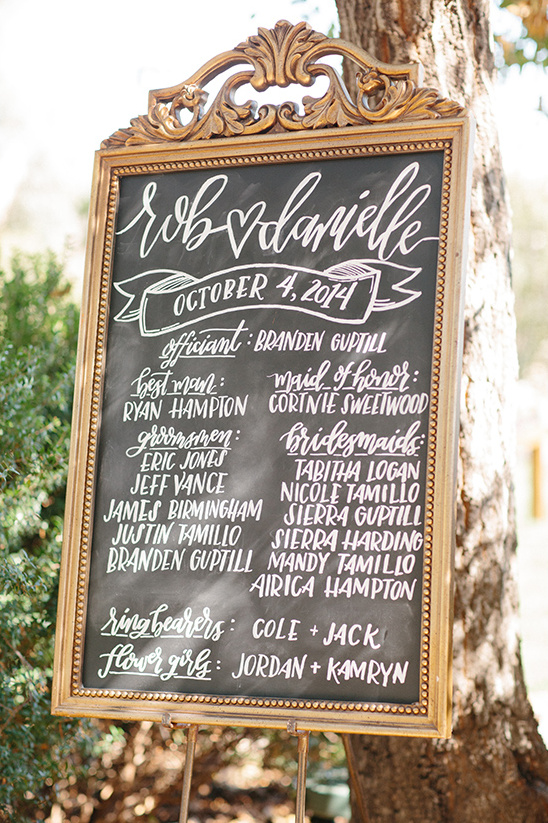 rob ♡ danielle
OCTOBER 4, 2014
officiant: BRANDEN GUPTILL
best man:
RYAN HAMPTON
maid of honor:
CORTNIE SWEETWOOD
groomsmen:
ERIC JONES
JEFF VANCE
JAMES BIRMINGHAM
JUSTIN TAMILLO
BRANDEN GUPTILL
bridesmaids:
TABITHA LOGAN
NICOLE TAMILLO
SIERRA GUPTILL
SIERRA HARDING
MANDY TAMILLO
AIRICA HAMPTON
ring bearers: COLE + JACK
flower girls: JORDAN + KAMRYN